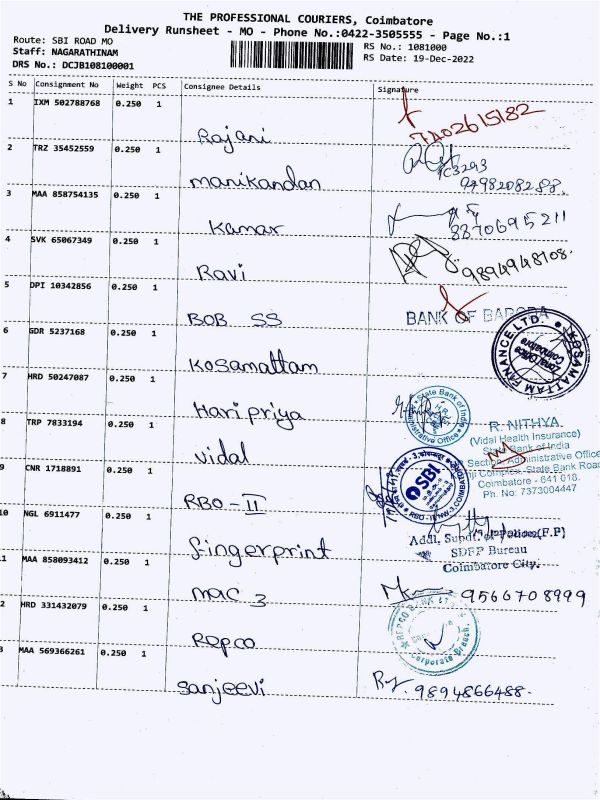 THE PROFESSIONAL COURIERS, Coimbatore
Delivery Runsheet - MO - Phone No.:0422-3505555 - Page No.:1
Route: SBI ROAD MO
Staff: NAGARATHINAM
DRS No.: DCJB108100001
RS No.: 1081000
RS Date: 19-Dec-2022
S No Consignment No Weight PCS Consignee Details Signature
1 IXM 502788768 0.250 1
Rajani 7402615182
2 TRZ 35452559 0.250 1
manikandan
3 MAA 858754135 0.250 1
Kamar 8870695211
4 SVK 65067349 0.250 1
Ravi 9894948108.
5 DPI 10342856 0.250 1
BOB SS BANK OF BARODA
6 GDR 5237168 0.250 1
Kosamattam KOSAMATTAM FINANCE LTD. Coimbatore
7 HRD 50247087 0.250 1
Hari priya State Bank of India Administrative Office
8 TRP 7833194 0.250 1
vidal
R. NITHYA
(Vidal Health Insurance)
State Bank of India
Section, Administrative Office
Complex, State Bank Road
Coimbatore - 641 018.
Ph. No: 7373004447
9 CNR 1718891 0.250 1
RBO - II SBI
10 NGL 6911477 0.250 1
fingerprint
Addl. Supdt. of Police (F.P)
SDFP Bureau
Coimbatore City.
11 MAA 858093412 0.250 1
mac 3 9566708999
2 HRD 331432079 0.250 1
Repco REPCO BANK LTD Corporate Branch
3 MAA 569366261 0.250 1
Sanjeevi 9894866488.